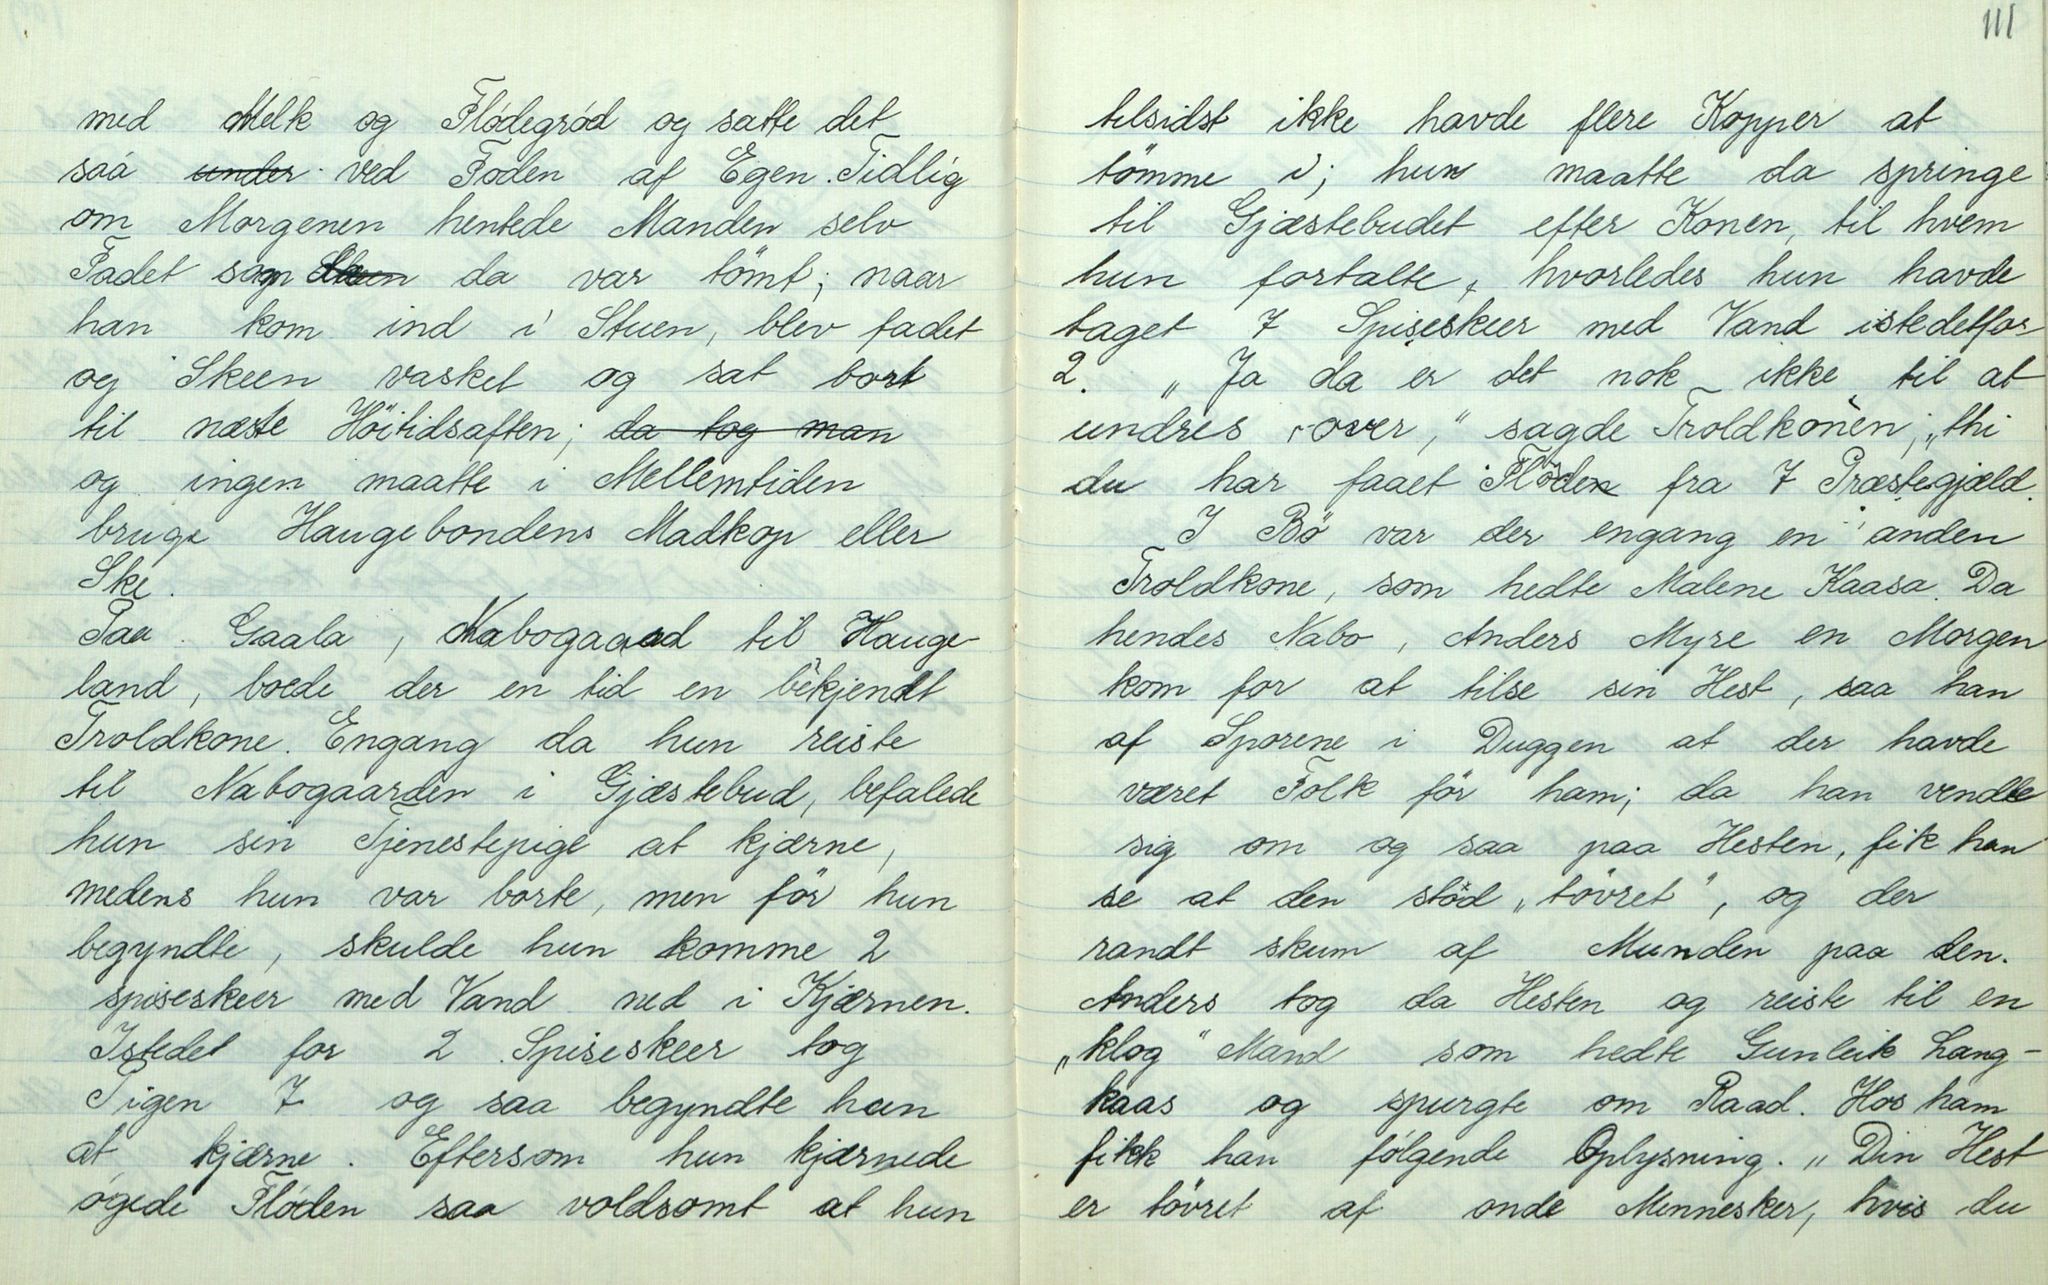 med Melk og Flödegröd og satte det
saa ~~under~~ ved Foden af Egen. Tidlig
om Morgenen hentede Manden selv
Fadet som da var tömt; naar
han kom ind i Stuen, blev fadet
og Skeen vasket og sat bort
til næste Höitidsaften; ~~da tog man~~
og ingen maatte i Mellemtiden
bruge Haugebondens Madkop eller
Ske.
Paa Gaala, Nabogaard til Hauge-
land, boede der en tid en bekjendt
Troldkone. Engang da hun reiste
til Nabogaarden i Gjæstebud, befalede
hun sin Tjenestepige at kjærne,
medens hun var borte, men för hun
begyndte, skulde hun komme 2
spiseskeer med Vand ned i Kjærnen.
Istedet for 2 Spiseskeer tog
Pigen 7 og saa begyndte hun
at kjærne. Eftersom hun kjærnede
ögede Flöden saa voldsomt at hun
111
tilsidst ikke havde flere Kopper at
tömme i; hun maatte da springe
til Gjæstebudet efter Konen, til hvem
hun fortalte, hvorledes hun havde
taget 7 Spiseskeer med Vand istedetfor
2. „Ja da er det nok ikke til at
undres over," sagde Troldkonen, „thi
du har faaet Flöden fra 7 Præstegjæld.
I Bö var der engang en anden
Troldkone, som hedte Malene Kaasa. Da
hendes Nabo, Anders Myre en Morgen
kom for at tilse sin Hest, saa han
af Sporene i Duggen at der havde
været Folk för ham; da han vendte
sig om og saa paa Hesten, fik han
se at den stöd „tövret", og der
randt skum af Munden paa den.
Anders tog da Hesten og reiste til en
„klog" Mand som hedte Gunleik Lang-
kaas og spurgte om Raad. Hos ham
fikk han fölgende Oplysning. „Din Hest
er tövret af onde Mennesker, hvis du